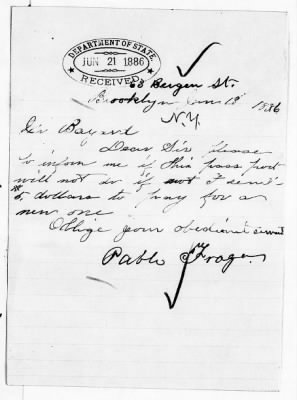 DEPARTMENT OF STATE
JUN 21 1886
RECEIVED
68 Bergen St.
Brooklyn Jun 19 1886
N.Y.
Sir Bayard
Dear Sir please
to inform me if this pass port
will not do if not I send
5 dollars to pay for a
new one
Oblige your obedient servent
Pablo Fraga